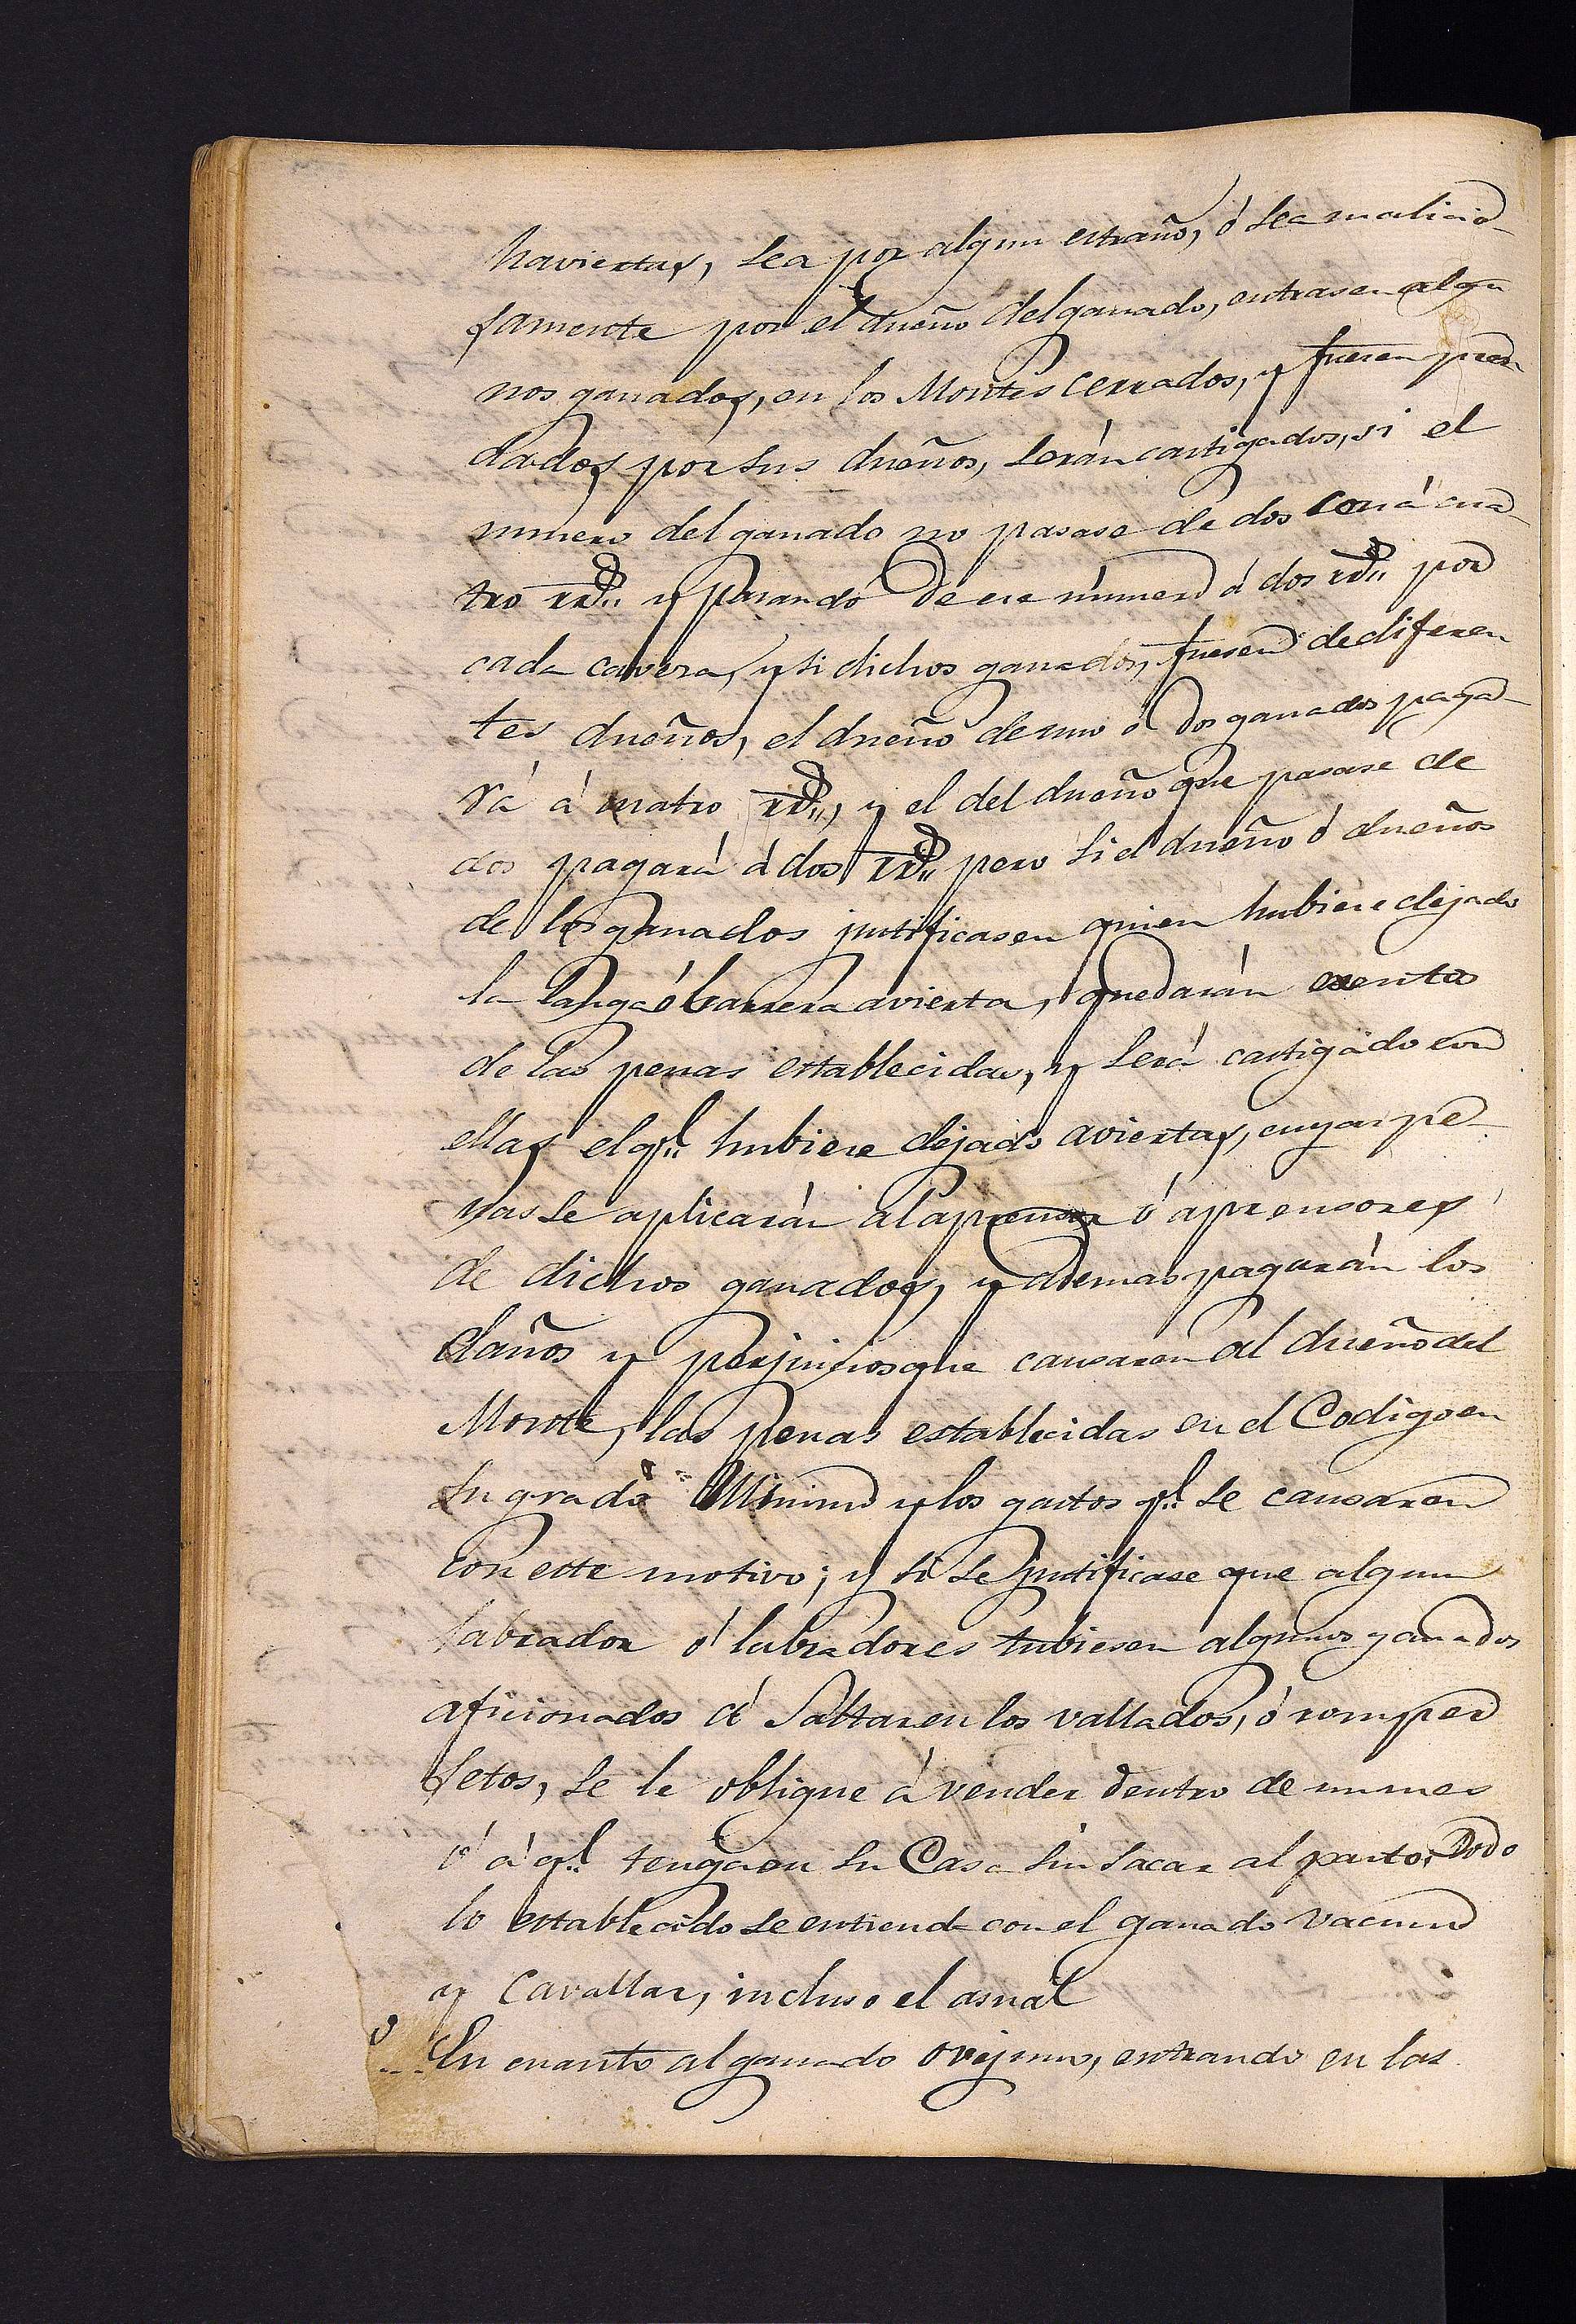 haviertas, sea por algun estraño, ó sea malicio-
samente por el dueño del ganado, entrasen algu
nos ganados, en los Montes cerrados, y fuesen pren
dados por sus dueños, serán castigados, si el
numero del ganado no pasase de dos con á cua-
tro rr.ˢ y pasando de ese número á dos rr.ˢ por
cada caveza, y si dichos ganados, fuesen de diferen
tes dueños, el dueño de uno ó dos ganados paga-
rá á cuatro rr.ˢ, y el del dueño que pasase de
dos pagará á dos rr.ˢ pero si el dueño ó dueños
de los ganados justificasen quien hubiere dejado
la langa ó barrera avierta, quedarán exentos
de las penas establecidas, y será castigado con
ellas el q.ᵉ hubiere dejado aviertas, cuyas pe-
nas se aplicarán al aprensor ó aprensores
de dichos ganados, y ademas pagarán los
daños y perjuicios que causaren al dueño del
Monte, las penas establecidas en el Codigo en
su grado Minimo y los gastos q.ᵉ se causaren
con este motivo; y si se justificase que algun
labrador ó labradores tubiesen algunos ganados
aficionados á saltar en los vallados, ó romper
setos, se le obligue á vender dentro de un mes
ó á q.ᵉ tenga en su Casa sin sacar al pasto. Todo
lo establecido se entiende con el ganado vacuno
y cavallar, incluso el asnal
En cuanto al ganado ovejuno, entrando en las